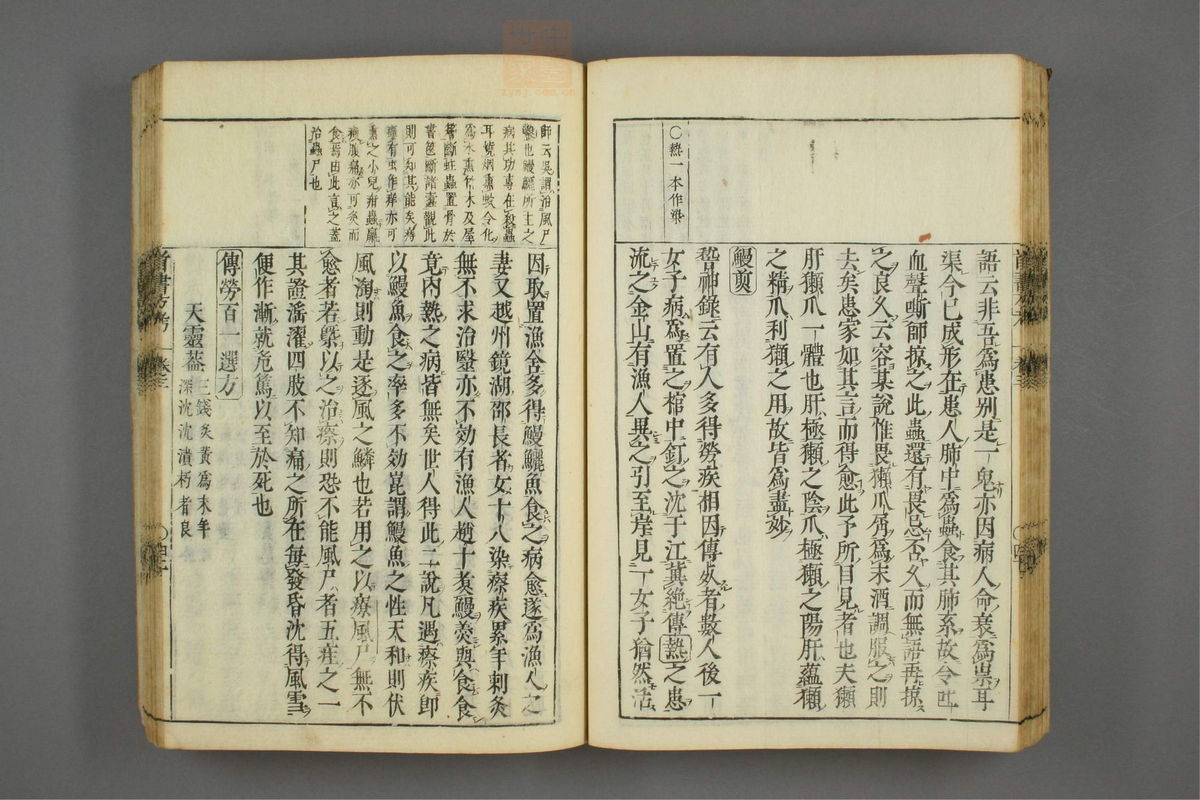 〇熱一本作染
語云非吾爲患別是一鬼亦因病人命衰爲祟耳
渠今已成形在患人肺中爲蟲食其肺系故令吐
血聲嘶師掠之此蟲還有畏忌否久而無語再掠
之良久云容某說惟畏獺爪屑爲末酒調服之則
去矣患家如其言而得愈此予所目見者也夫獺
肝獺爪一體也肝極獺之陰爪極獺之陽肝蘊獺
之精爪利獺之用故皆爲盡妙
鰻煎
稽神錄云有人多得勞疾相因傳死者數人後一
女子病爲置之棺中釘之沈于江冀絕傳熱之患
流之金山有漁人異之引至岸見一女子猶然活
師云吳謂治風尸
鰻也鰻鱺所主之
病其功專在殺蟲
耳燒烟熏蚊令化
爲水熏竹木及屋
骨斷蛀蟲置骨於
書笥斷諸蠹觀此
則可知其能矣痔
瘻有虫作痒亦可
熏之小兒疳蟲羸
瘦腹痛亦可炙而
食焉由此言之蓋
治蟲尸也
因取置漁舍多得鰻鱺魚食之病愈遂爲漁人之
妻又越州鏡湖邵長者女十八染瘵疾累年刺灸
無不求治醫亦不効有漁人趙十煑鰻羮與食食
竟內熱之病皆無矣世人得此二說凡遇瘵疾卽
以鰻魚食之率多不効崑謂鰻魚之性天和則伏
風淘則動是逐風之鱗也若用之以療風尸無不
愈者若槩以之治瘵則恐不能風尸者五疰之一
其證滛濯四肢不知痛之所在每發昏沈得風雪
便作漸就危篤以至於死也
傳勞百一選方
天靈蓋三錢炙黃爲末年
深沈沈潰朽者良